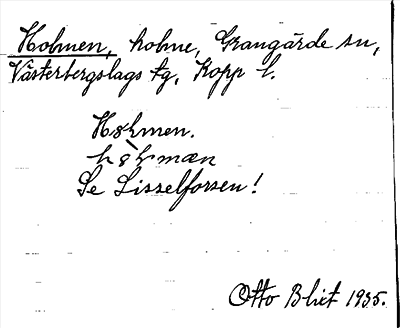 Holmen, holme, Grangärde sn,
Västerbergslags tg, Kopp l.
Hoḷmen.
Se Lisselforsen!
Otto Blixt 1935.